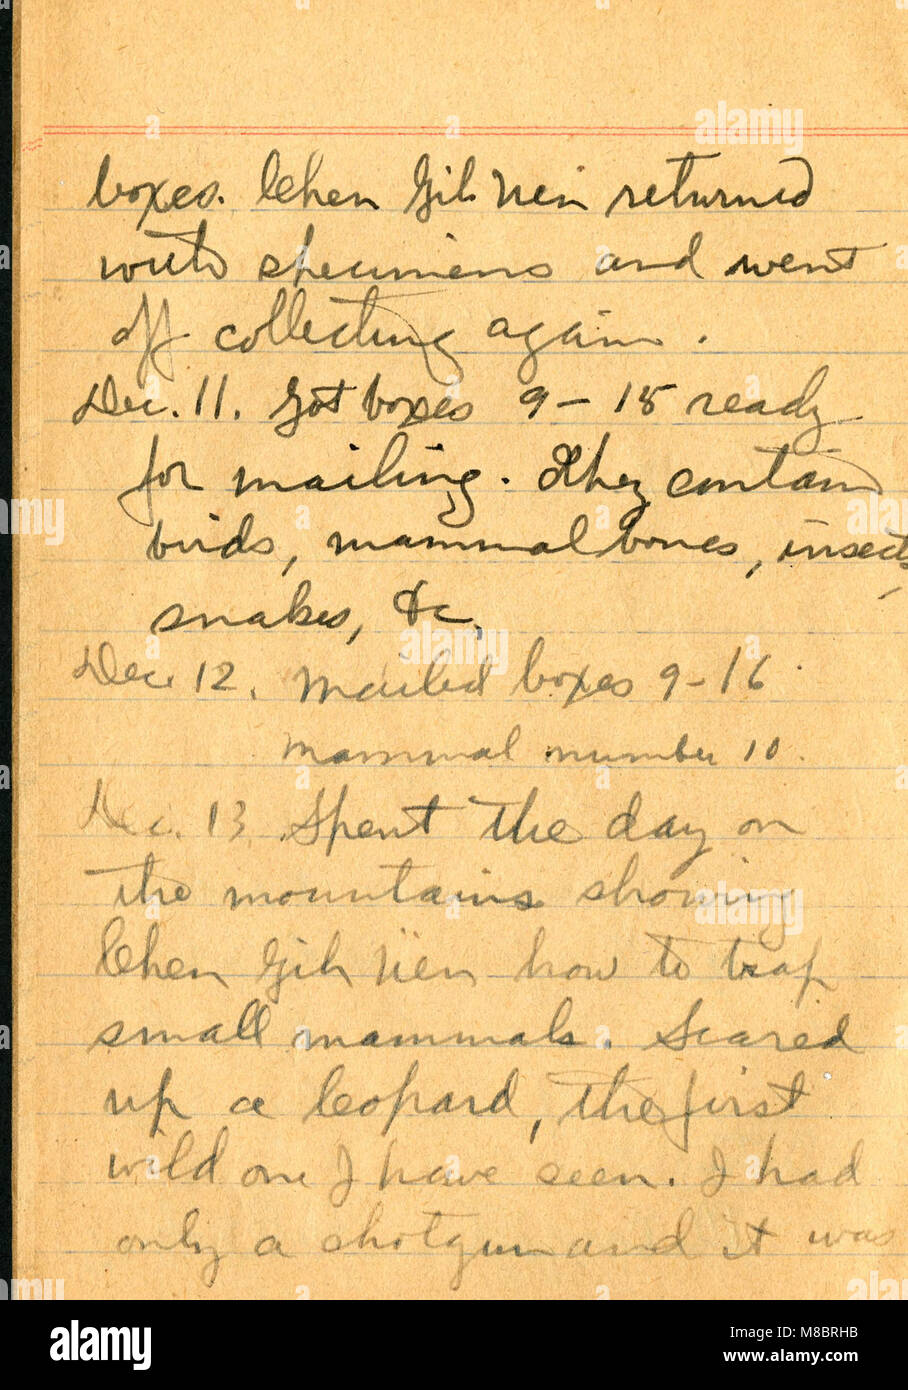 boxes. Chen Gih Nien returned
with specimens and went
off collecting again.
Dec. 11. Got boxes 9-15 ready
for mailing. They contain
birds, mammal bones, insects,
snakes, &c.
Dec. 12. Mailed boxes 9-16.
mammal number 10.
Dec. 13 Spent the day on
the mountains showing
Chen Gih Nien how to trap
small mammals. Scared
up a leopard, the first
wild one I have seen. I had
only a shotgun and it was
alamy
Image ID: M8BRHB
www.alamy.com